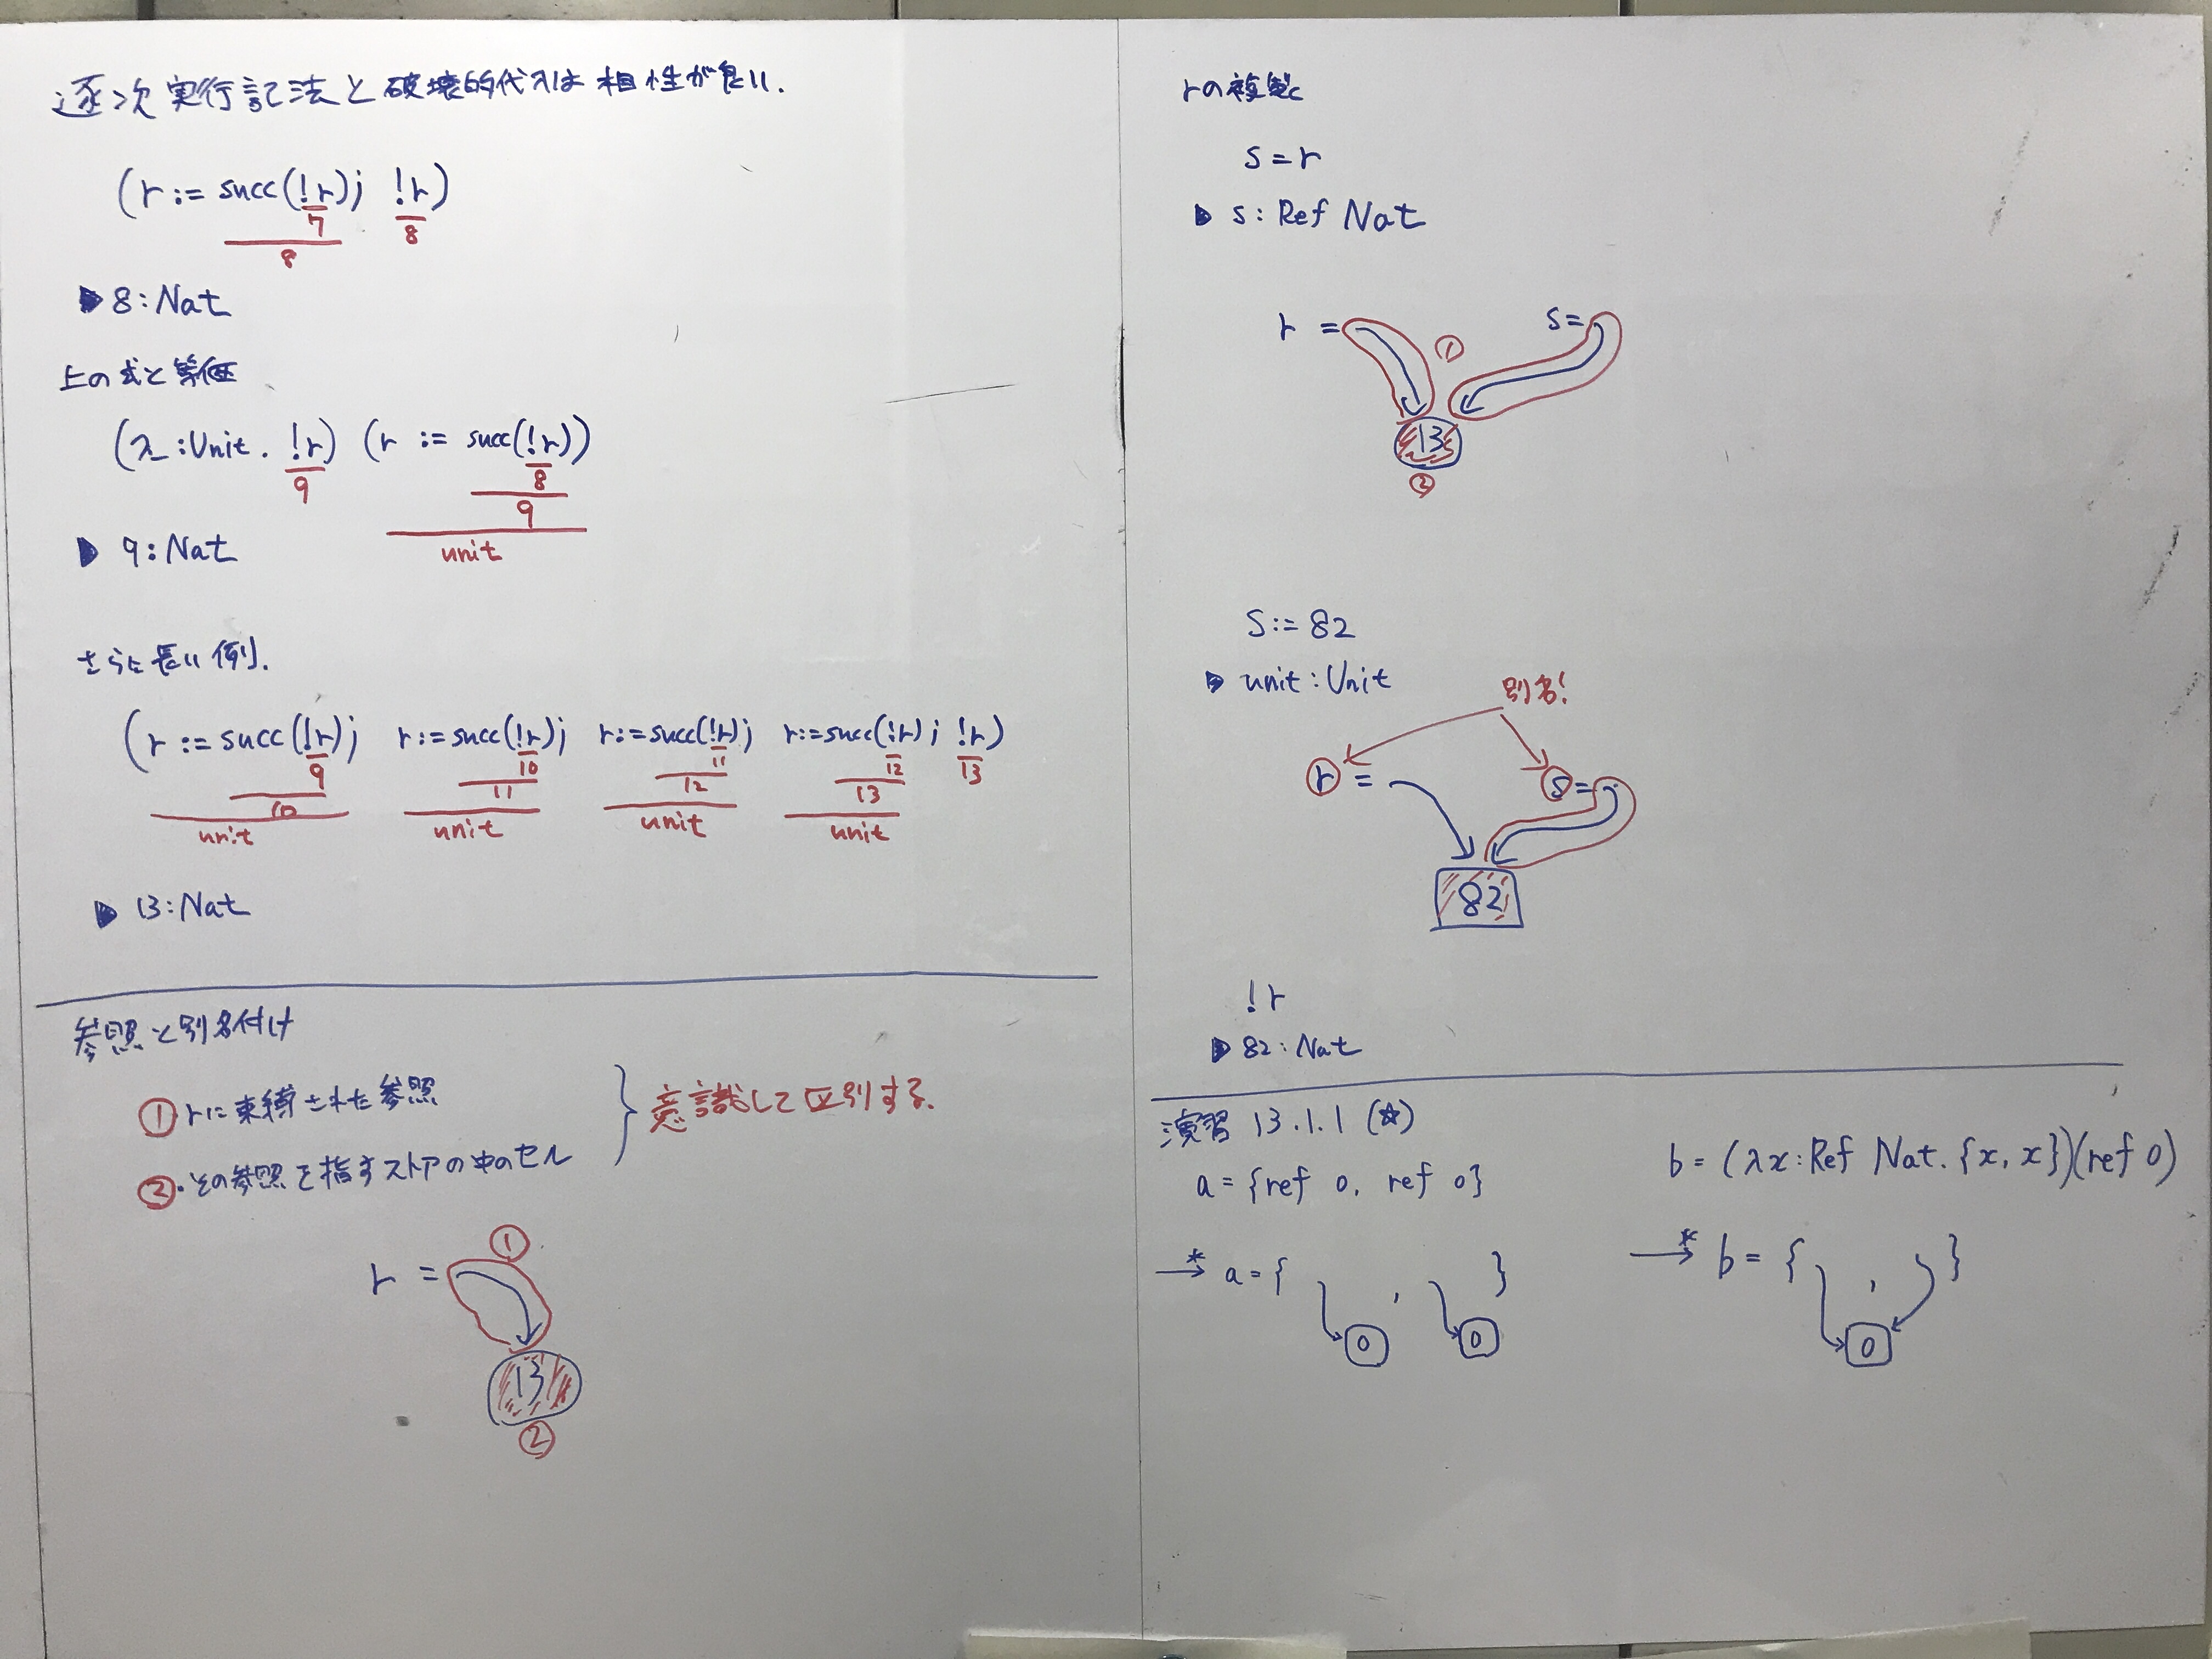 逐次実行記法と破壊的代入は相性が良い.
(r := succ(!r); !r)
7
8
8
▶ 8:Nat
上の式と等価
(λ_:Unit. !r) (r := succ(!r))
9
8
9
unit
▶ 9:Nat
さらに長い例.
(r := succ(!r); r:=succ(!r); r:=succ(!r); r:=succ(!r); !r)
9 10 11 12 13
10 11 12 13
unit unit unit unit
▶ 13:Nat
参照と別名付け
① rに束縛された参照
②・その参照を指すストアの中のセル
意識して区別する.
①
r =
13
②
rの複製
s = r
▶ s: Ref Nat
r = ① s =
13
②
s := 82
▶ unit:Unit
別名!
r = s =
82
!r
▶ 82: Nat
演習 13.1.1 (☆)
a = {ref 0, ref 0}
→* a = { , }
0 0
b = (λx:Ref Nat. {x, x})(ref 0)
→* b = { , }
0